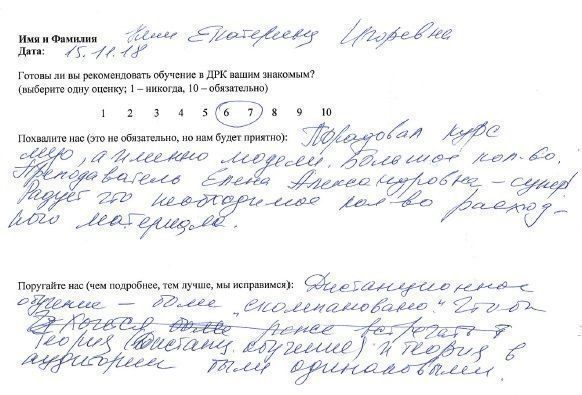 Имя и Фамилия Екатерина Игоревна
Дата: 15.11.18
Готовы ли вы рекомендовать обучение в ДРК вашим знакомым?
(выберите одну оценку; 1 – никогда, 10 – обязательно)
1 2 3 4 5 6 7 8 9 10
Похвалите нас (это не обязательно, но нам будет приятно): Порадовал курс
, а именно модели. Большое кол-во.
Преподаватель Елена Александровна – супер!
Радует что необходимое кол-во расход-
ного материала.
Поругайте нас (чем подробнее, тем лучше, мы исправимся): Дистанционное
обучение – более "скомпановано" Чтобы
Хочется более
Теория (дистанц. обучение) и теория в
аудитории были одинаковыми.